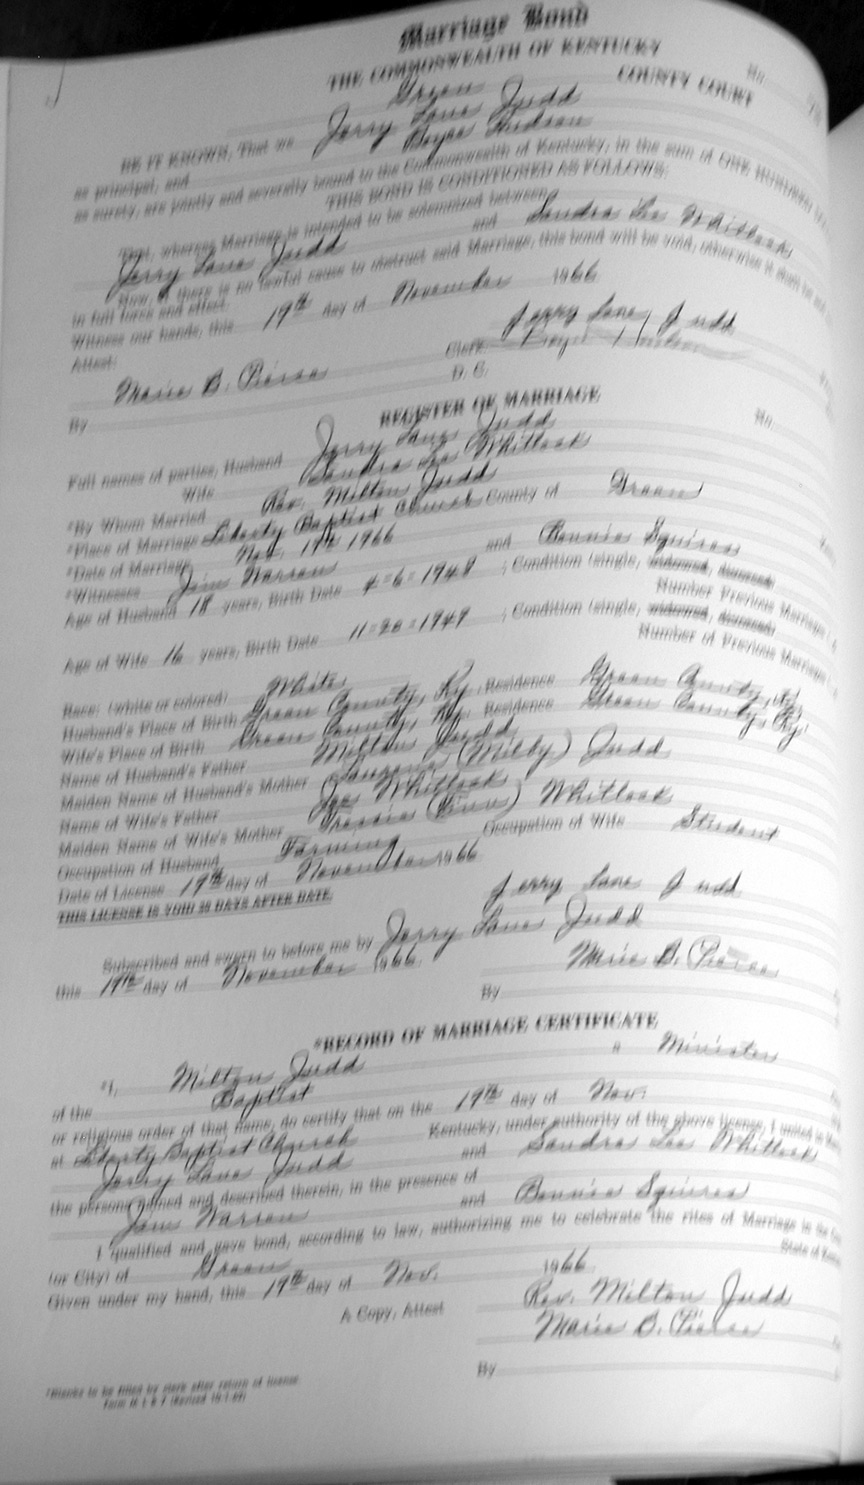 Marriage Bond
THE COMMONWEALTH OF KENTUCKY
No.
Green COUNTY COURT
BE IT KNOWN, That we Jerry Lane Judd
as principal, and Boyce Hudson
as surety, are jointly and severally bound to the Commonwealth of Kentucky, in the sum of ONE HUNDRED
THIS BOND IS CONDITIONED AS FOLLOWS:
That, whereas Marriage is intended to be solemnized between
Jerry Lane Judd and Sandra Lee Whitlock
Now, if there is no lawful cause to obstruct said Marriage, this bond will be void, otherwise it shall be
in full force and effect.
Witness our hands, this 19th day of November 1966
Attest: Jerry Lane Judd
Clerk
By Marie B. Pierce D. C.
REGISTER OF MARRIAGE
No.
Full names of parties, Husband Jerry Lane Judd
Wife Sandra Lee Whitlock
*By Whom Married Rev. Milton Judd
*Place of Marriage Liberty Baptist Church County of Green
*Date of Marriage Nov. 19th 1966
*Witnesses Jim Warren and Bonnie Squires
Age of Husband 18 years, Birth Date 4-6-1948 ; Condition (single, widowed, divorced)
Number Previous Marriages
Age of Wife 16 years, Birth Date 11-20-1949 ; Condition (single, widowed, divorced)
Number of Previous Marriages
Race: (white or colored) White
Husband's Place of Birth Green County, Ky. Residence Green County, Ky.
Wife's Place of Birth Green County, Ky. Residence Green County, Ky.
Name of Husband's Father Milton Judd
Maiden Name of Husband's Mother (Milby) Judd
Name of Wife's Father Joe Whitlock
Maiden Name of Wife's Mother Whitlock
Occupation of Husband Farming Occupation of Wife Student
Date of License 19th day of November 1966
THIS LICENSE IS VOID 30 DAYS AFTER DATE
Jerry Lane Judd
Subscribed and sworn to before me by Jerry Lane Judd
this 19th day of November 1966. Marie B. Pierce
By
*RECORD OF MARRIAGE CERTIFICATE
*I, Milton Judd a Minister
of the Baptist
or religious order of that name, do certify that on the 19th day of Nov.
at Liberty Baptist Church Kentucky, under authority of the above license, I united in
Jerry Lane Judd and Sandra Lee Whitlock
the persons named and described therein, in the presence of
Jim Warren and Bonnie Squires
I qualified and gave bond, according to law, authorizing me to celebrate the rites of Marriage in the
(or City) of Green State of
Given under my hand, this 19th day of Nov. 1966
Rev. Milton Judd
A Copy, Attest Marie B. Pierce
By
*Blanks to be filled by clerk after return of license